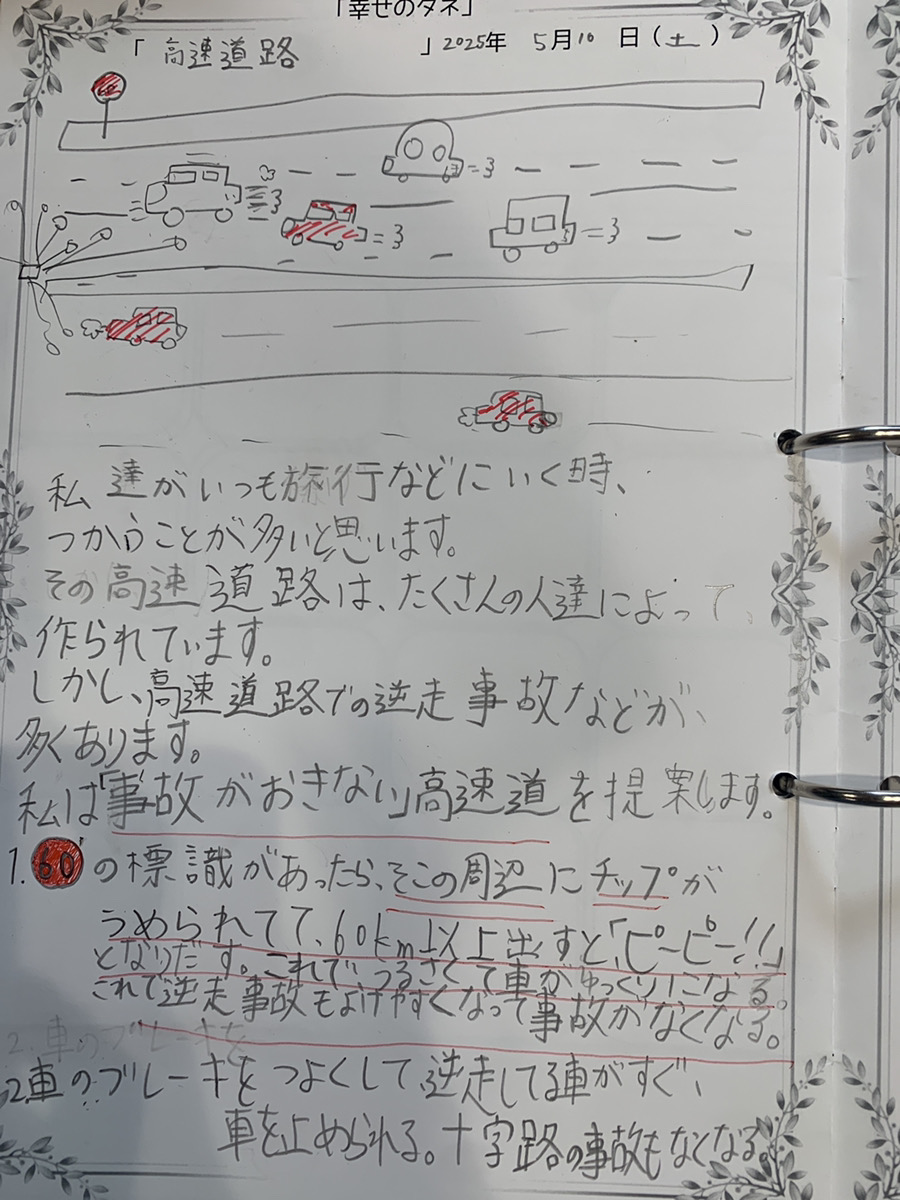 「幸せのタネ」
「 高速道路 」2025年 5月10日(土)
私達がいつも旅行などにいく時、
つかうことが多いと思います。
その高速道路は、たくさんの人達によって、
作られています。
しかし、高速道路での逆走事故などが、
多くあります。
私は「事故がおきない」高速道を提案します。
1.60の標識があったら、そこの周辺にチップが
うめられてて、60km以上出すと「ピーピー!!」
となりだす。これでうるさくて車がゆっくりになる。
これで逆走事故もよけやすくなって事故がなくなる。
2.車のブレーキを
2.車のブレーキをつよくして、逆走してる車がすぐ、
車を止められる。十字路の事故もなくなる。